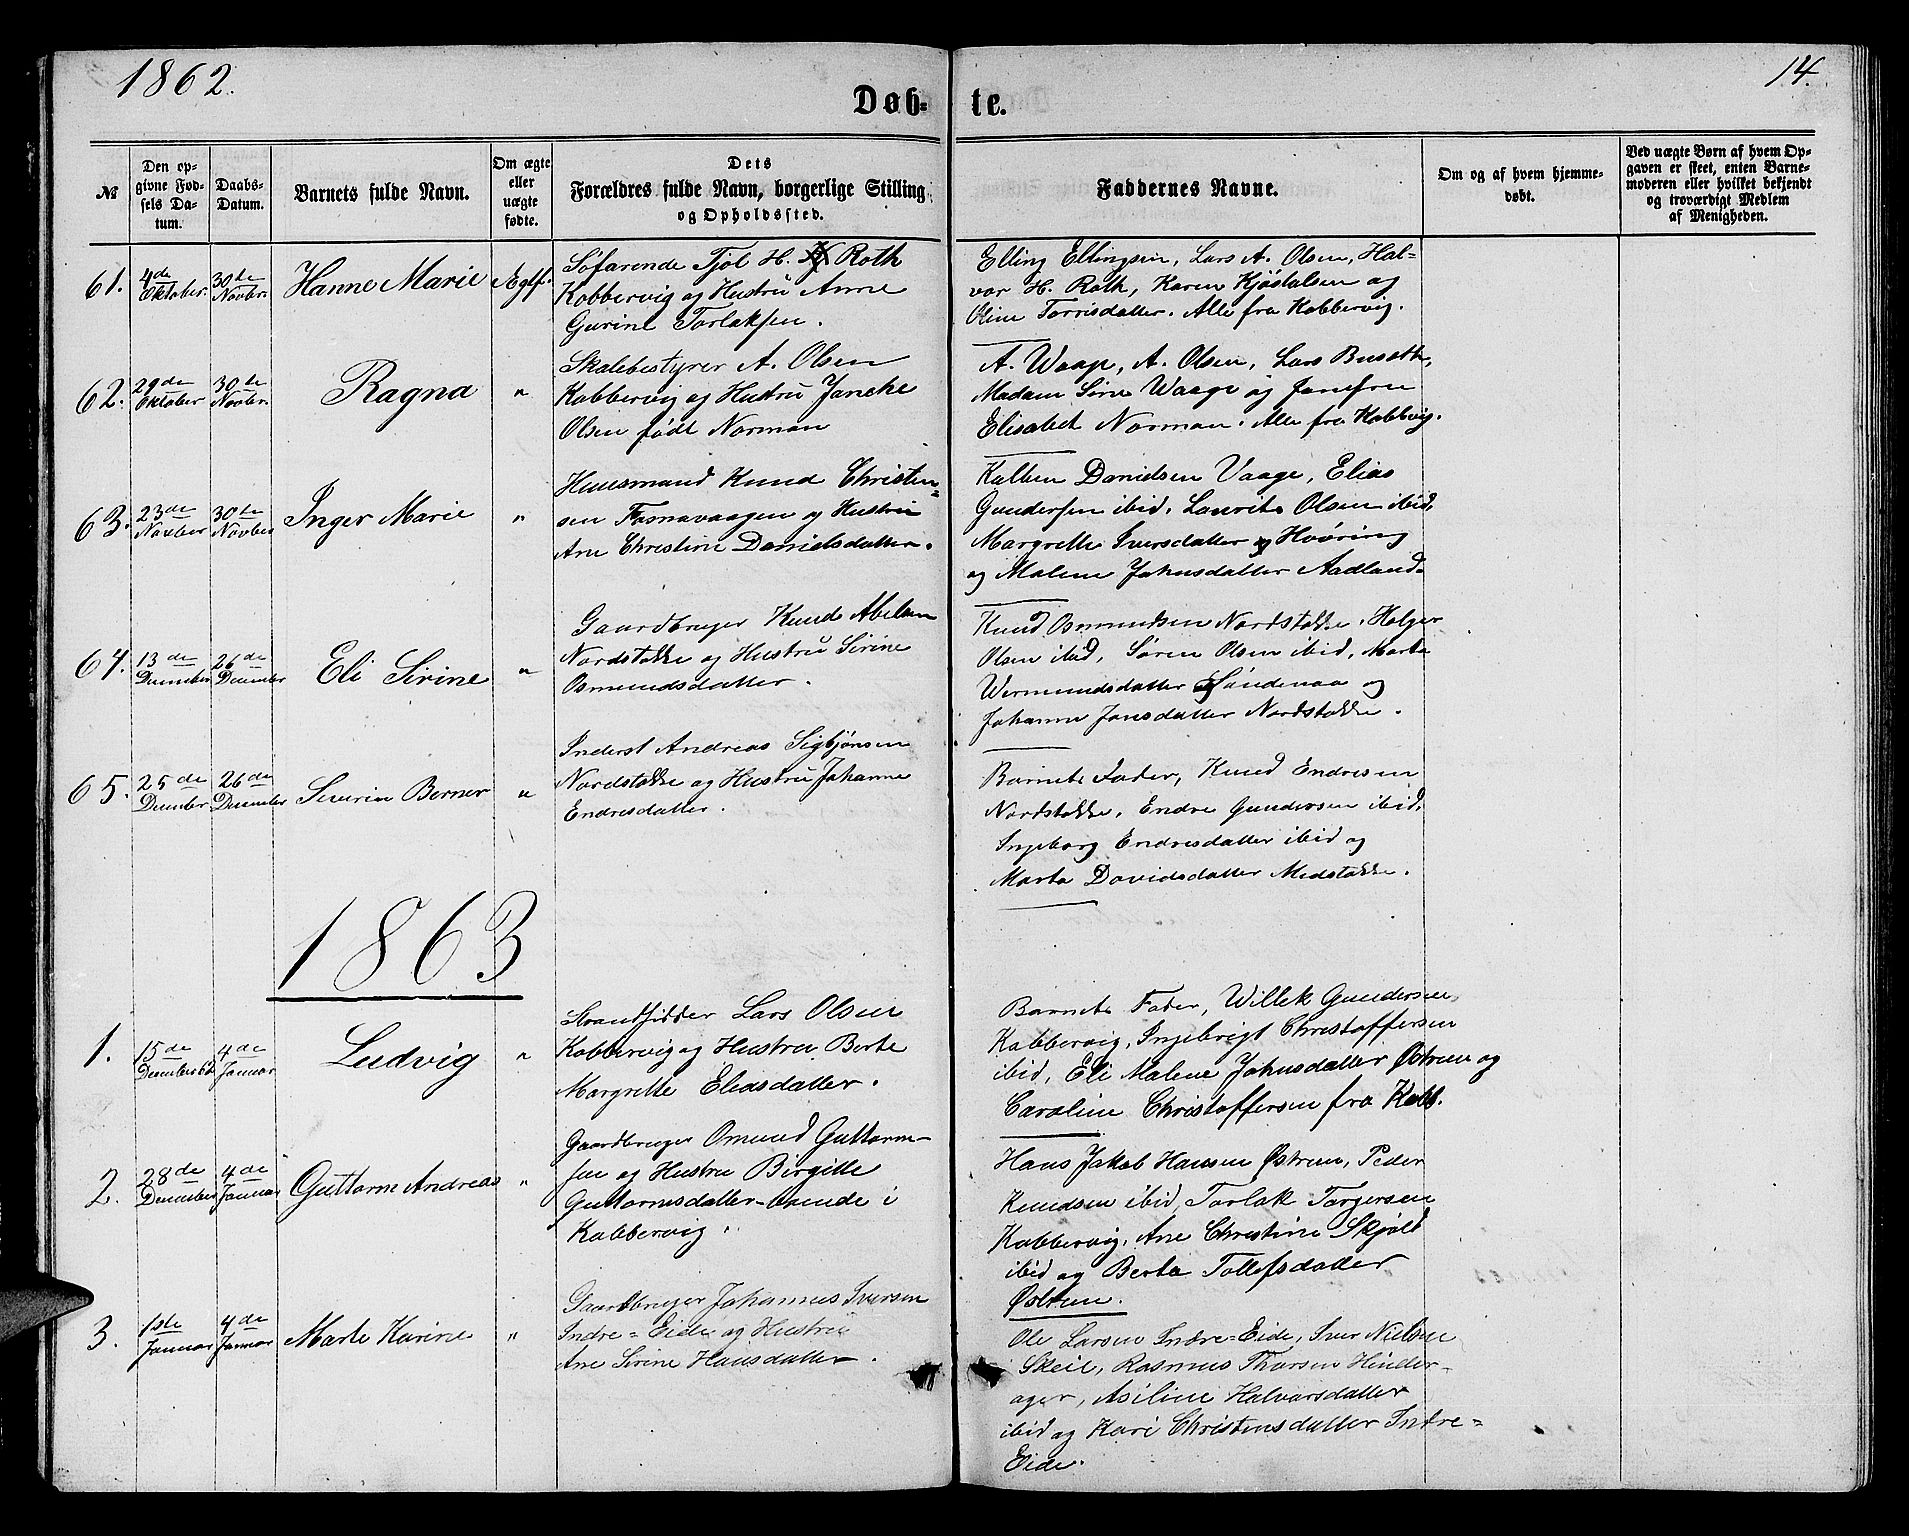 1862.
14.
Døb-te.
№
Den opgivne Fødsels Datum.
Daabs-Datum.
Barnets fulde Navn.
Om ægte eller uægte fødte.
Dets Forældres fulde Navn, borgerlige Stilling og Opholdssted.
Faddernes Navne.
Om og af hvem hjemmedøbt.
Ved uægte Børn af hvem Opgaven er skeet, enten Barnemoderen eller hvilket bekjendt og troværdigt Medlem af Menigheden.
61. 4de Oktober. 30te Novbr. Hanne Marie Ægtf.
Søfarende Tjøl H. Roth
Kobbervig og Hustru Anne
Gurine Torlaksen.
Elling Ellingsen, Lars A. Olsen, Hal-
vor H. Roth, Karen Kjøstolsen og
Oline Torrisdatter. Alle fra Kobbervig.
62. 29de Oktober 30te Novbr. Ragna "
Skolebestyrer A. Olsen
Kobbervig og Hustru Jancke
Olsen født Norman
A. Waage, A. Olsen, Lars
Madam Sirie Waage og Jomfru
Elisabet Norman. Alle fra Kobbvig.
63. 23de Novber 30te Novber Inger Marie "
Huusmand Knud Christen=
sen Fosnavaagen og Hustru
Ane Christine Danielsdatter.
Kolben Danielsen Vaage, Elias
Gundersen ibid, Laurits Olsen ibid,
Margrethe Iversdatter Hvøring
og Malene Johnsdatter Aadland.
64. 13de December 26de December Eli Sirine "
Gaardbruger Knud Abelsen
Nordstokke og Hustru Sirine
Osmundsdatter.
Knud Osmundsen Nordstokke, Holger
Olsen ibid, Søren Olsen ibid, Marta
Wermundsdatter Sandenaa og
Johanne Jonsdatter Nordstokke.
65. 25de December 26de December Severin Berner "
Inderst Andreas Sigbjønsen
Nordstokke og Hustru Johanne
Endresdatter.
Barnets Fader, Knud Endresen
Nordstokke, Endre Gundersen ibid,
Ingeborg Endresdatter ibid og
Marta Davidsdatter Medstokke.
1863
1. 15de December 62 4de Januar Ludvig "
Strandsidder Lars Olsen
Kobbervig og Hustru Berte
Margrethe Eliasdatter.
Barnets Fader, Willek Gundersen
Kobbervig, Ingebrigt Christoffersen
ibid, Eli Malene Johnsdatter Østrem og
Caroline Christoffersen fra Kobb.
2. 28de December 4de Januar Guttorm Andreas "
Gaardbruger Omund Guttorm-
sen og Hustru Birgitte
Guttormsdatter boende i
Kobbervig.
Hans Jakob Hansen Østrem, Peder
Knudsen ibid, Torlak Torgersen
Kobbervig, Ane Christine Skjølt
ibid og Berta Tollefsdatter
Østrem.
3. 1ste Januar 4de Januar Marte Karine "
Gaardbruger Johannes Iversen
Indre=Eide og Hustru
Ane Sirine Hansdatter.
Ole Larsen Indre=Eide, Iver Nielsen
Skeie, Rasmus Thorsen Hinder-
ager, Aseline Halvorsdatter
ibid og Kari Christensdatter Indre=
Eide.